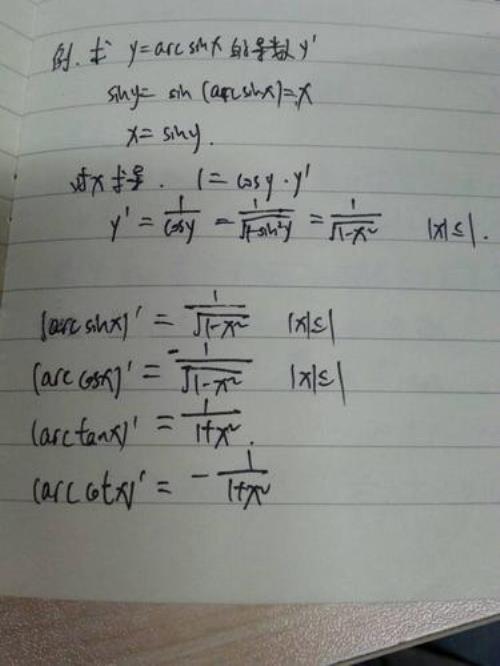 例. 求 y=arcsinx 的导数 y'
siny= sin (arcsinx)=x
x= siny.
对x求导. 1= cosy·y'
y' = 1/cosy = 1/√(1-sin²y) = 1/√(1-x²) |x|≤1.
(arcsinx)' = 1/√(1-x²) |x|≤1
(arccosx)' = -1/√(1-x²) |x|≤1
(arctanx)' = 1/(1+x²).
(arccotx)' = -1/(1+x²)